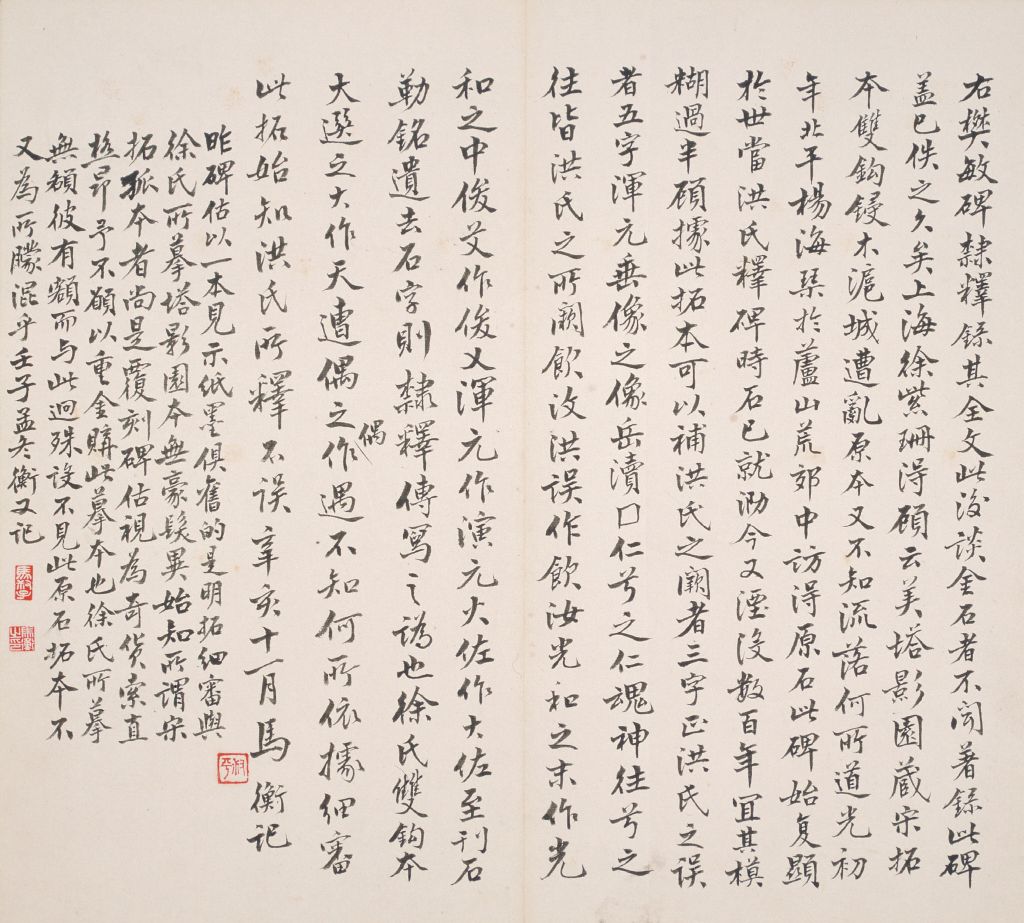 右樊敏碑隸釋錄其全文此後談金石者不聞著錄此碑
蓋已佚之久矣上海徐紫珊得顧云美塔影園藏宋拓
本雙鈎鋟木滬城遭亂原本又不知流落何所道光初
年北平楊海琴於蘆山荒郊中訪得原石此碑始复顯
於世當洪氏釋碑時石已就泐今又湮沒数百年宜其模
糊過半顧據此拓本可以補洪氏之闕者三字正洪氏之誤
者五字渾元垂像之像岳瀆口仁兮之仁魂神往兮之
往皆洪氏之所闕飲汶洪誤作飲汝光和之末作光
和之中俊艾作俊乂渾元作演元大佐作大佐至刊石
勒銘遺去石字則隸釋傳寫之譌也徐氏雙鈎本
大選之大作天遭偶之偶作遇不知何所依據細審
此拓始知洪氏所釋不誤辛亥十一月馬衡記
昨碑估以一本見示紙墨俱舊的是明拓細審與
徐氏所摹塔影園本無豪髮異始知所謂宋
拓孤本者尚是覆刻碑估視為奇貨索直
極昂予不願以重金購此摹本也徐氏所摹
無額彼有額而与此迥殊設不見此原石拓本不
又為所朦混乎壬子孟冬衡又記